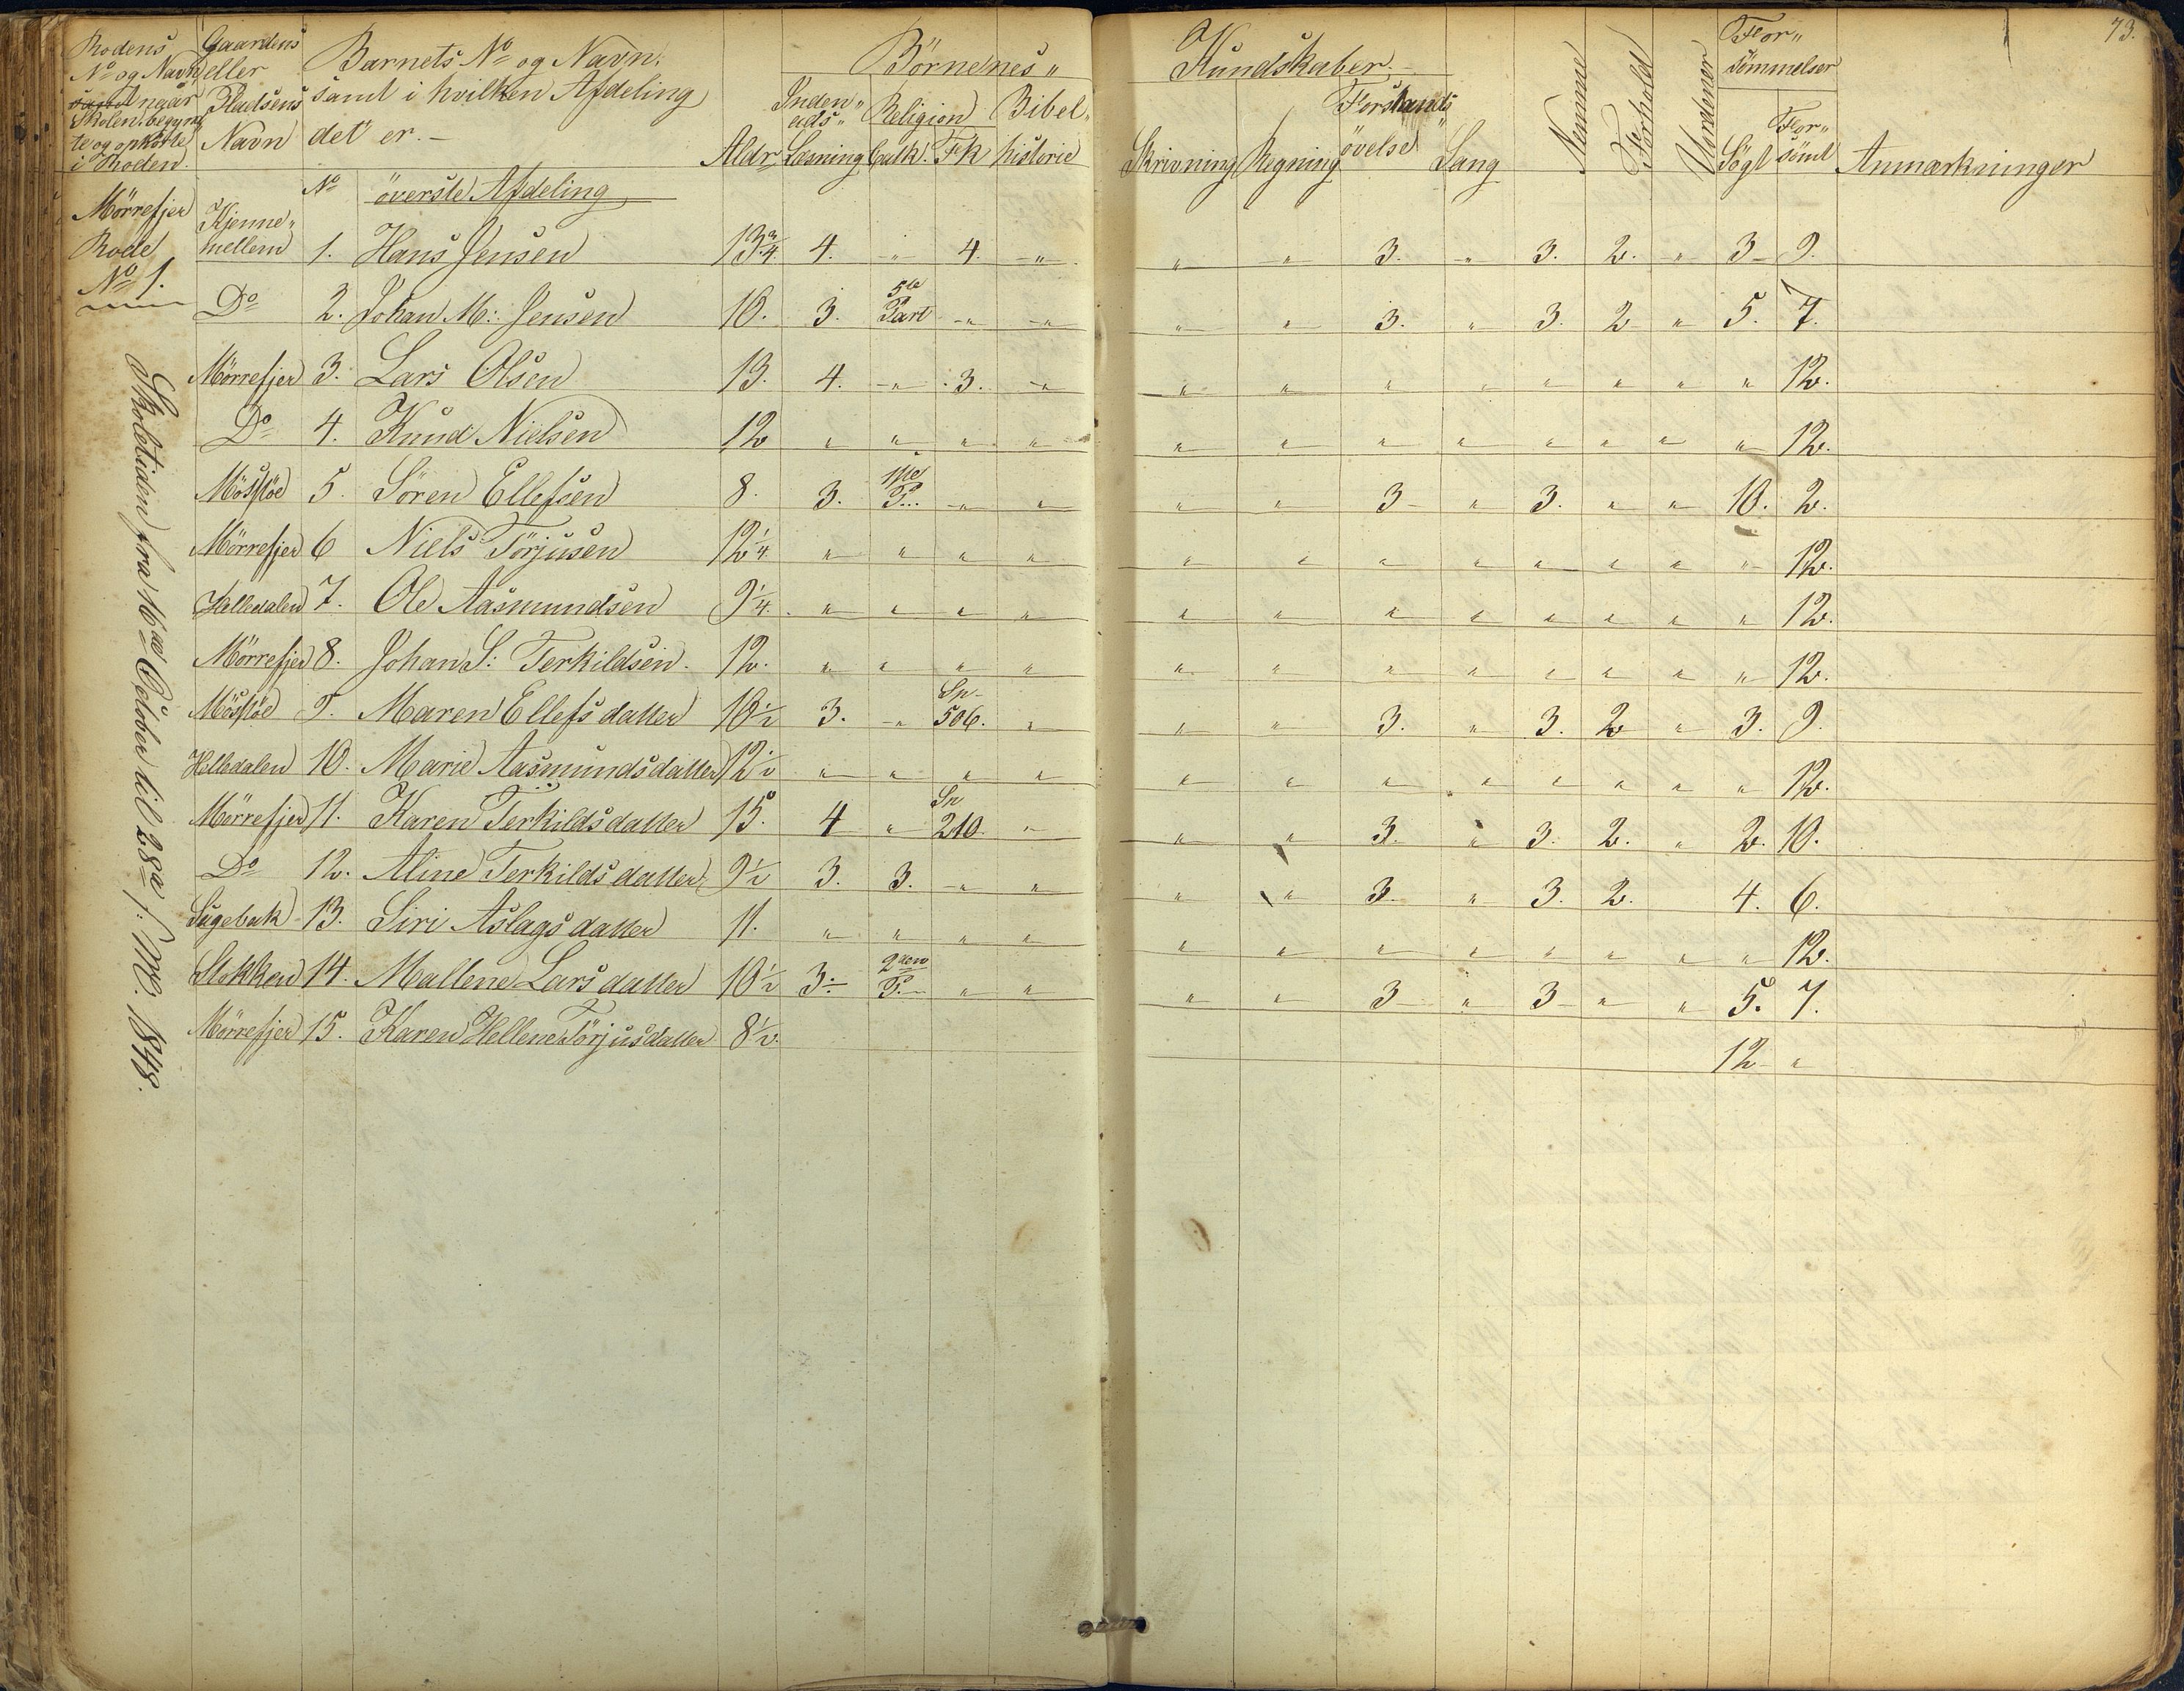 73.
Rodens No og Navn samt naar Skolen begyndte og ophørte i Roden.
Gaardens eller Pladsens Navn
Barnets No og Navn, samt i hvilken Afdeling det er.
Børnenes Kundskaber.
Aldr
Inden ads Læsning
Religion
Catk! Fk
Bibel historie
Skrivning
Regning
Forstands øvelse
Sang
Nemme
Forhold
Uordener
For sömmelser
Søgt
For sömt
Anmærkninger
Mörrefjer Rode No 1.
Skoletiden fra 16de October til 28de s: M. 1848.
No överste Afdeling
Kjenne mellem 1. Hans Jensen 13 3/4 4. " 4. " " " 3. " 3. 2. " 3 9.
Do 2. Johan M: Jensen 10. 3. 5te Part " " " " 3. " 3. 2 " 5. 7.
Mörrefjer 3. Lars Olsen 13. 4. " 3. " " " " " " " " " 12.
Do 4. Knud Nielsen 12 " " " " " " " " " " " " 12.
Mösløe 5. Sören Ellefsen 8. 3. 1ste P. " " " " 3 " 3. " " 10. 2.
Mörrefjer 6 Niels Törjusen 12 1/4 " " " " " " " " " " " " 12.
Helledalen 7. Ole Aasmundsen 9 1/4 " " " " " " " " " " " " 12.
Mörrefjer 8. Johan S: Terkildsen. 12. " " " " " " " " " " " " 12.
Mösløe 9. Maren Ellefsdatter 10 1/2 3. " Sp. 506. " " " 3. " 3. 2 " 3. 9.
Helledalen 10. Marie Aasmundsdatter 12 1/2 " " " " " " " " " " " " 12.
Mörrefjer 11. Karen Terkildsdatter 15. 4 " Sp 210. " " " 3. " 3. 2. " 2. 10.
Do 12. Aline Terkildsdatter 9 1/2 3. 3. " " " " 3. " 3. 2. 4. 6.
Sagebak 13. Siri Aslagsdatter 11. " " " " " " " " " " " " 12.
Stokken 14. Mallene Larsdatter 10 1/2 3. 2den P. " " " " 3 " 3 " " 5. 7.
Mörrefjer 15. Karen Hellene Törjusdatter 8 1/2. 12 "